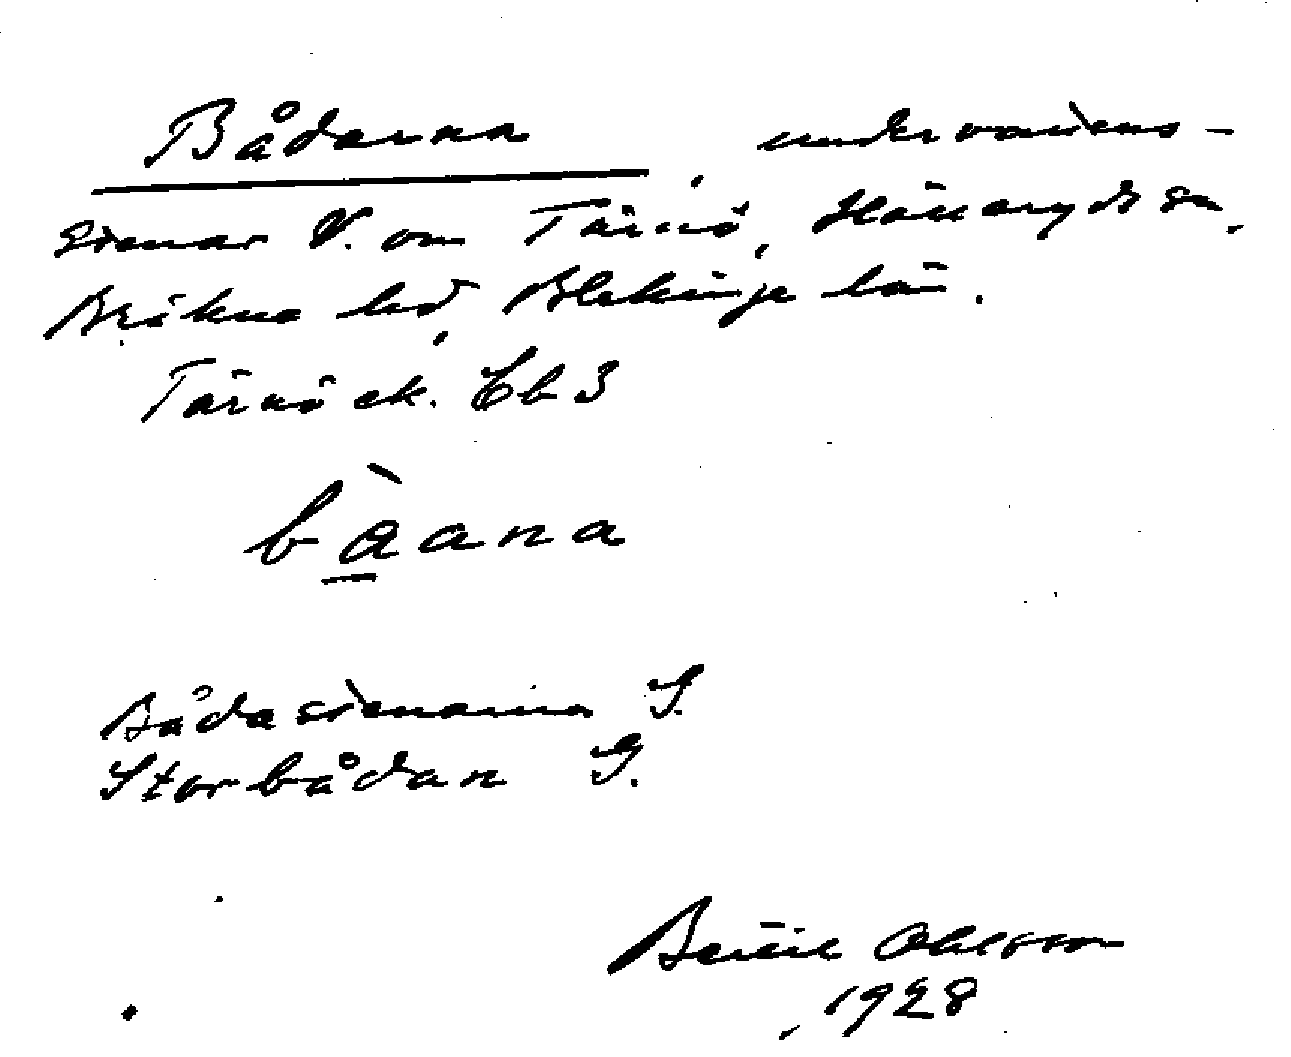 Bådarna, undervattens-
stenar V. om Tärnö, Hällaryds sn,
Bräkne hd, Blekinge län.
Tärnö ek. Cb 3
bàana
Bådastenarna S.
Storbådan S.
Bertil Ohlsson
1928